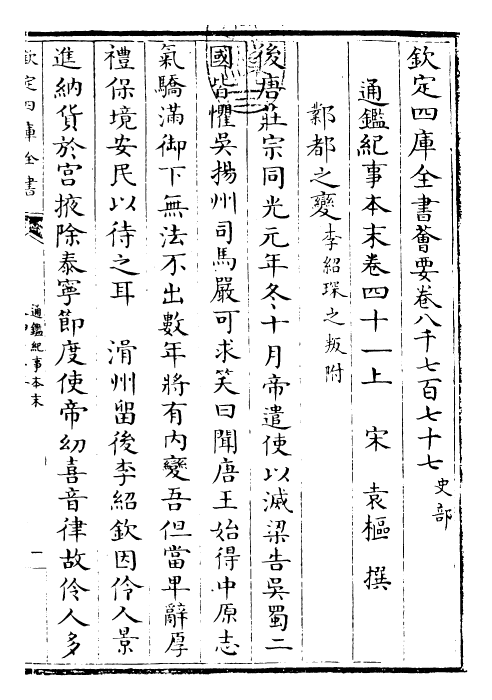 欽定四庫全書薈要卷八千七百七十七 史部
通鑑紀事本末卷四十一上 宋 袁樞 撰
鄴都之變 李紹琛之叛附
後唐莊宗同光元年冬十月帝遣使以滅梁告吳蜀二
國皆懼吳揚州司馬嚴可求笑曰聞唐王始得中原志
氣驕滿御下無法不出數年將有內變吾但當卑辭厚
禮保境安民以待之耳 滑州留後李紹欽因伶人景
進納貨於宮掖除泰寧節度使帝幼喜音律故伶人多
欽定四庫全書
通鑑紀事本末
一